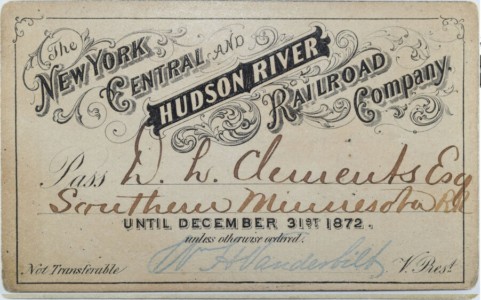 The
NEW YORK
CENTRAL AND
HUDSON RIVER
RAILROAD
Company.
Pass D. L. Clements Esq
Southern Minnesota RR
UNTIL DECEMBER 31ST 1872.
unless otherwise ordered.
W H Vanderbilt
Not Transferable V. Prest.